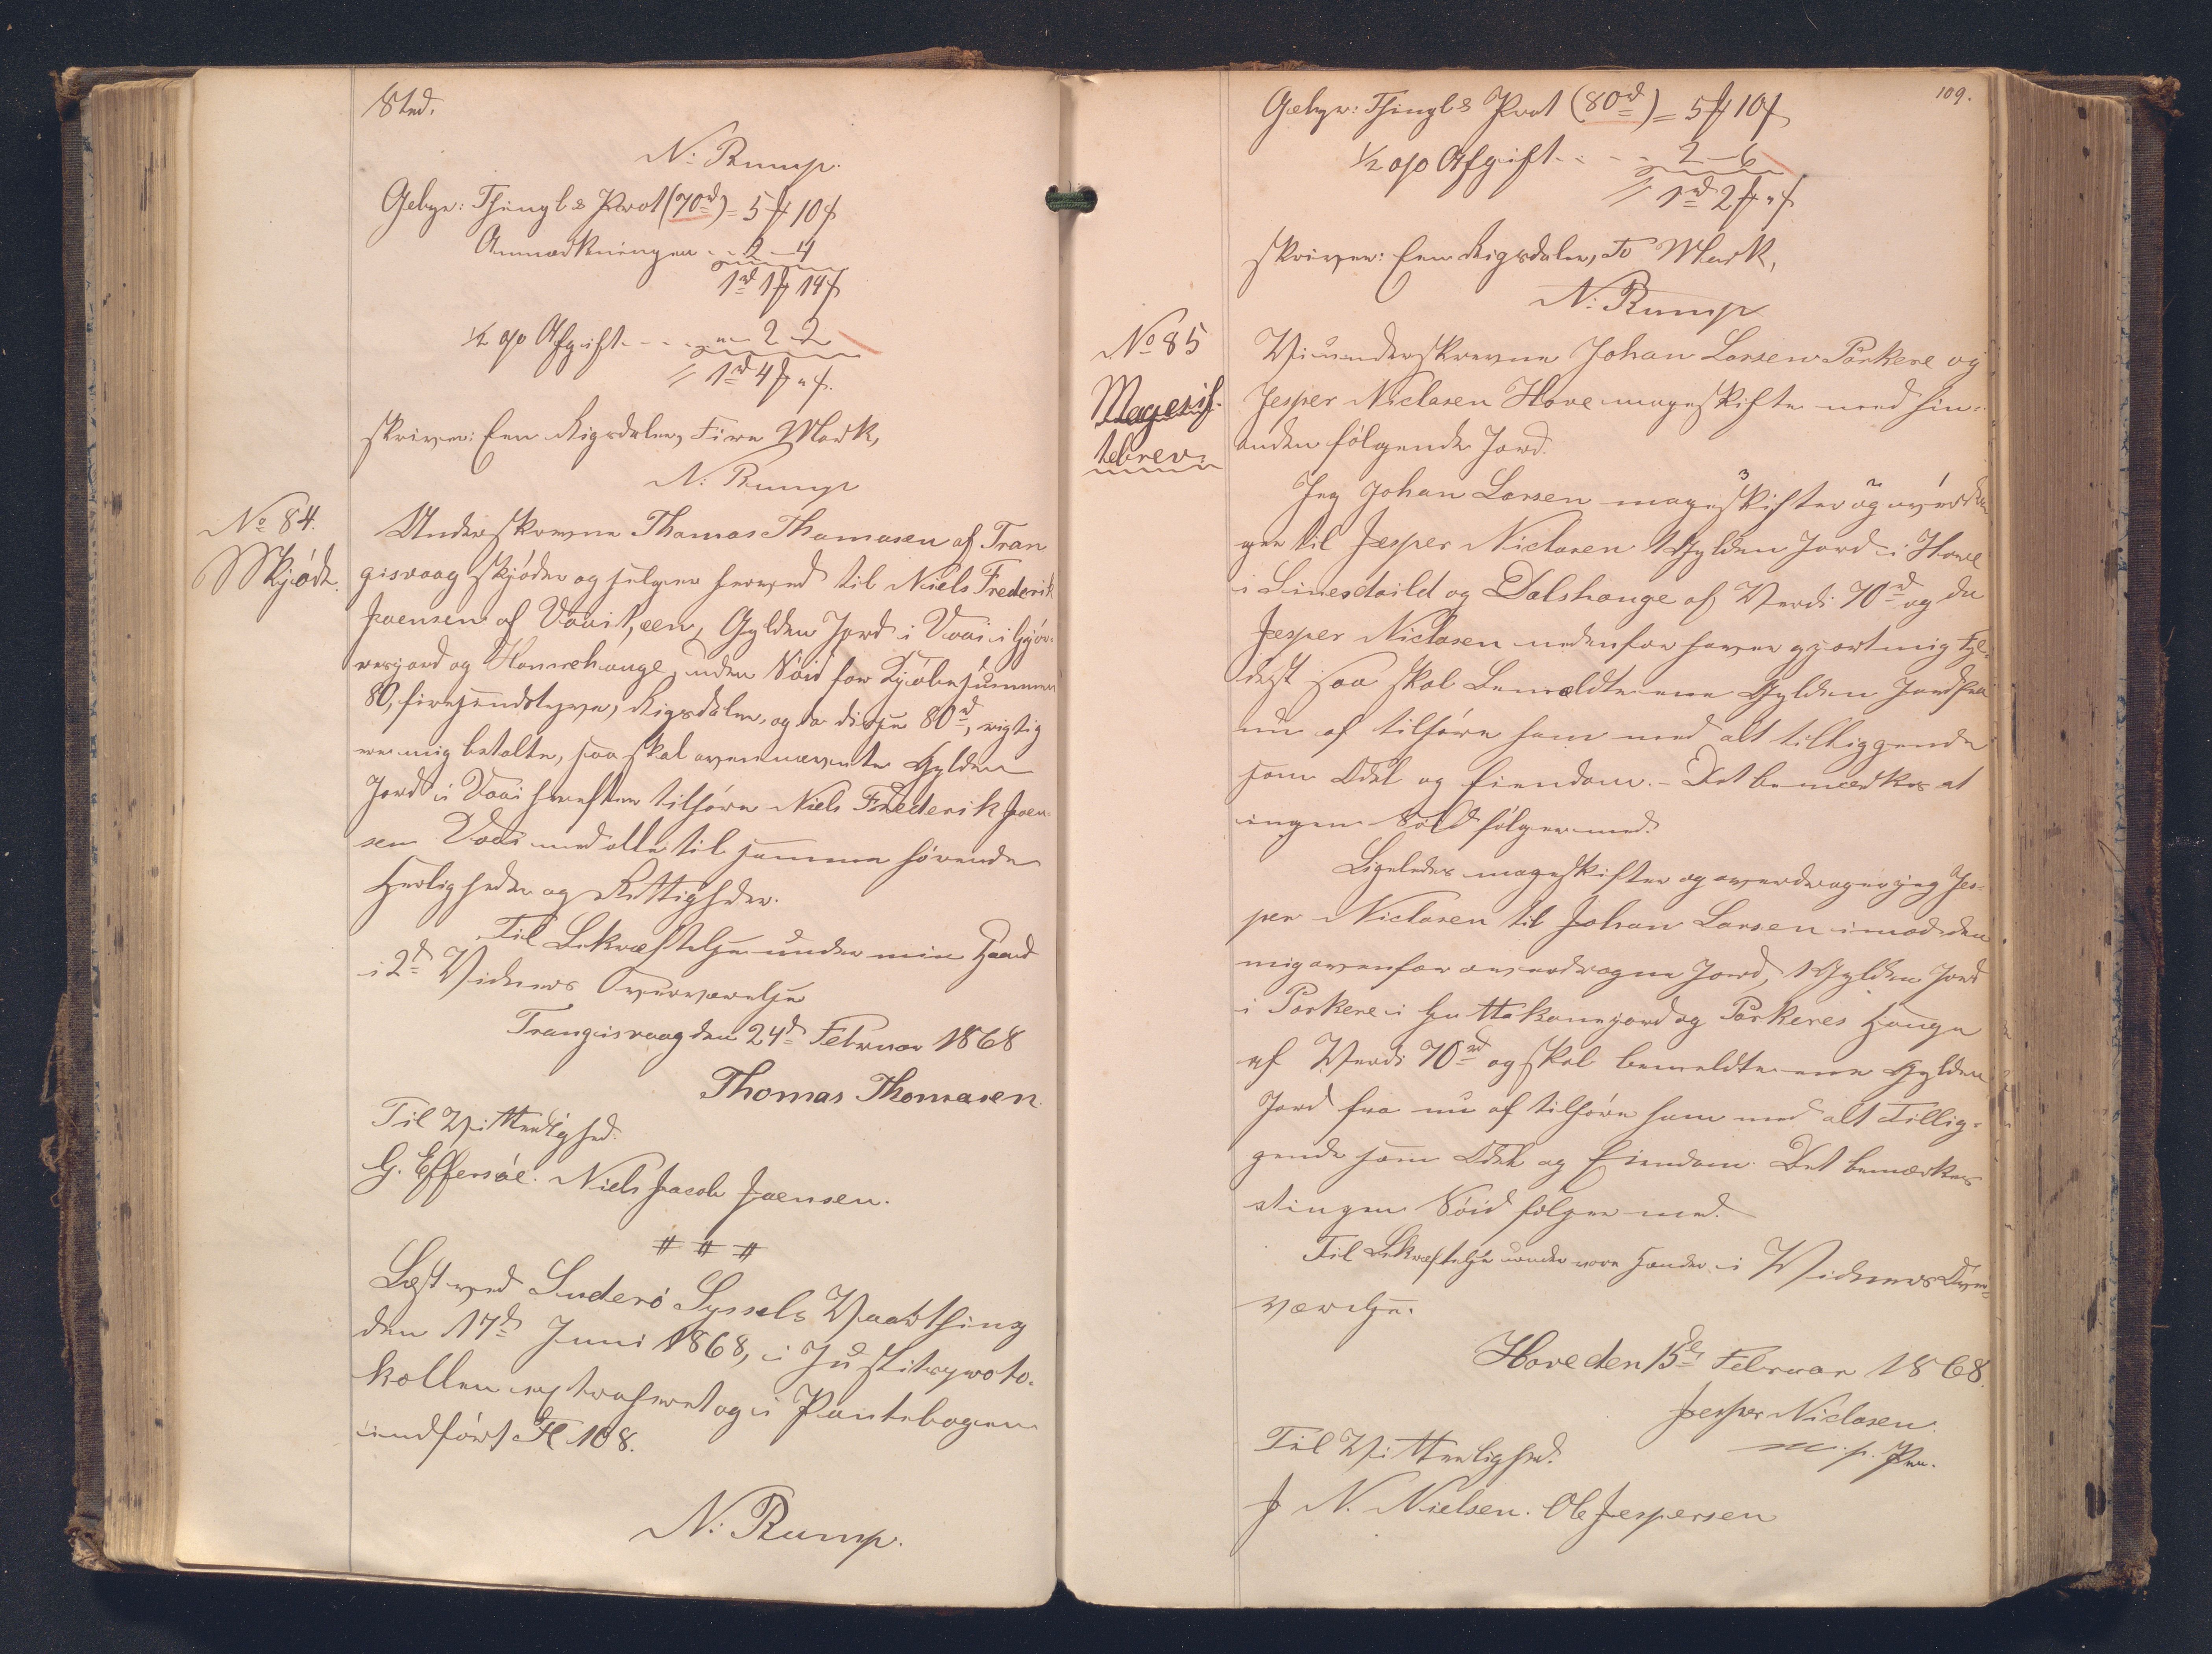 Sted.
N: Rump.
Gebyr: Thingl & Prot (70rd) = 5 ℳ 10 ß
Anmærkningen . . 2 - 4
1rd 1ℳ 14ß
½ o/o Afgift - - - „ - 2 - 2
1rd 4ℳ „ß.
skriver: Een Rigsdaler, Fire Mark,
N: Rump
No 84.
Skjøde.
Underskrevne Thomas Thomasen af Tran
gisvaag skjøder og sælger herved til Niels Frederik
Joensen af Vaait, een, Gylden Jord i Vaai i
og Hannehauge, uden Nöid for Kjøbesummen
80, firesindstyve, Rigsdaler, og da disse 80rd, rigtig
er mig betalte, saa skal ovennævnte Gylden
Jord i Vaai herefter tilhøre Niels Frederik Joen-
sen Vaai med alle til samme hørende
Herligheder og Rettigheder.
Til Bekræftelse under min Haand
i 2de Vidners Overværelse
Trangisvaag den 24de Februar 1868
Thomas Thomasen.
Til Vitterlighed.
G. Effersøe. Niels Jacob Joensen.
# # #
Læst ved Suderö Syssels Vaarthing
den 17de Juni 1868, i Justitsproto-
kollen extraheret og i Pantebogen
indført Fl 108.
N: Rump.
109.
Gebyr: Thingl & Prot (80rd) = 5ℳ 10ß
½ o/o Afgift - - - 2 - 6
1rd 2ℳ „ß
skriver: Een Rigsdaler, To Mark,
N: Rump
No 85
Magesif-
tebrev.
Vi underskrevne Johan Larsen Porkere og
Jesper Niclasen Hove mageskifte med hin-
anden følgende Jord.
Jeg Johan Larsen mageskifter og overdra
ger til Jesper Niclasen 1 Gylden Jord i Hove
i Linesdaild og Dalshauge af Verdi 70rd og da
Jesper Niclasen nedenfor haver gjort mig fyl-
dest saa skal bemældte ene Gylden Jord fra
nu af tilhøre ham med alt tilliggende
som Odel og Eiendom. - Det bemærkes at
ingen Nöid følger med.
Ligeledes mageskifter og overdrager jeg Jes-
per Niclasen til Johan Larsen imod den
mig ovenfor overdragne Jord, 1 Gylden Jord
i Porkere i og Porkeres Hauge
af Verdi 70rd og skal bemeldte ene Gylden
Jord fra nu af tilhøre ham med alt Tillig-
gende som Odel og Eiendom. Det bemærkes
at ingen Nöid følger med.
Til Bekræftelse under vore Hænder i Vidners Over-
værelse.
Hove den 15de Februar 1868.
Jesper Niclasen.
m. p. Pen.
Til Vitterlighed.
J N. Nielsen. Ole Jespersen